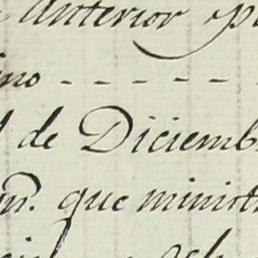 anterior p
ino - - - - - -
de Diciemb
que minist